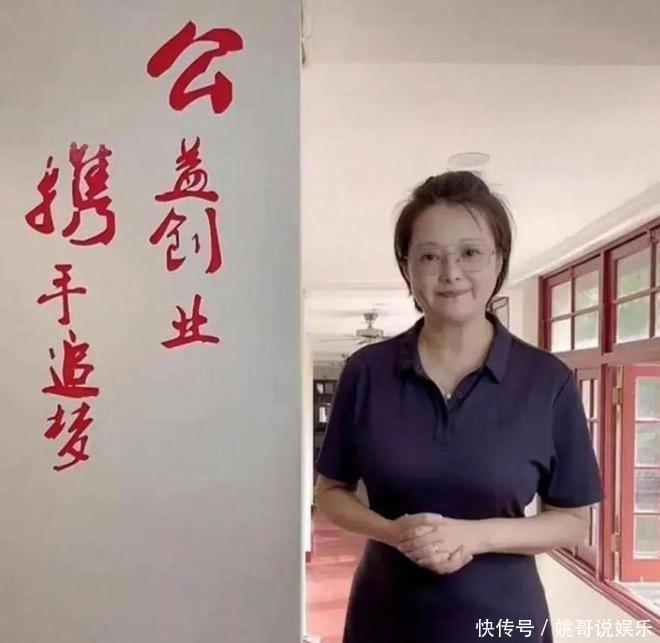 公益创业
携手追梦
快传号/姚哥说娱乐